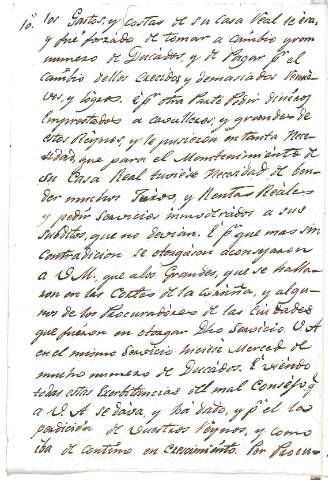 10.
los Gastos, y costas de su Casa Real te era,
y fue forzado de tomar a cambio gran
numero de Ducados, y de Pagar pr el
cambio dellos crecidos, y demasiados
vos, y logros. E pr otra Parte Pidir dineros
Emprestados a cavalleros, y grandes de
estos Reynos, y le pusieron en tanta Nece-
sidad, que para el Mantenimiento de
su Casa Real tuviese Necesidad de ben-
der muchos Juros, y Rentas Reales
y pedir Servicios inmoderados a sus
Subditos, que no devian. E pr que mas sin
contradicion se otorgasen aconsejaron
a V. M. que a los Grandes, que se halla-
ron en las Cortes de la Coruña, y algu-
nos de los Procuradores de las Ciudades
que fueron en otorgar Dho Servicio. V. A
en el mismo Servicio hiciese Merced de
mucho numero de Ducados. E viendo
todas estas Exorbitancias del mal Consejo, q
a V. A se dava, y ha dato, y pr el la
perdicion de Vuestros Reynos, y como
iba de contino en Crecimiento. Por Procu-